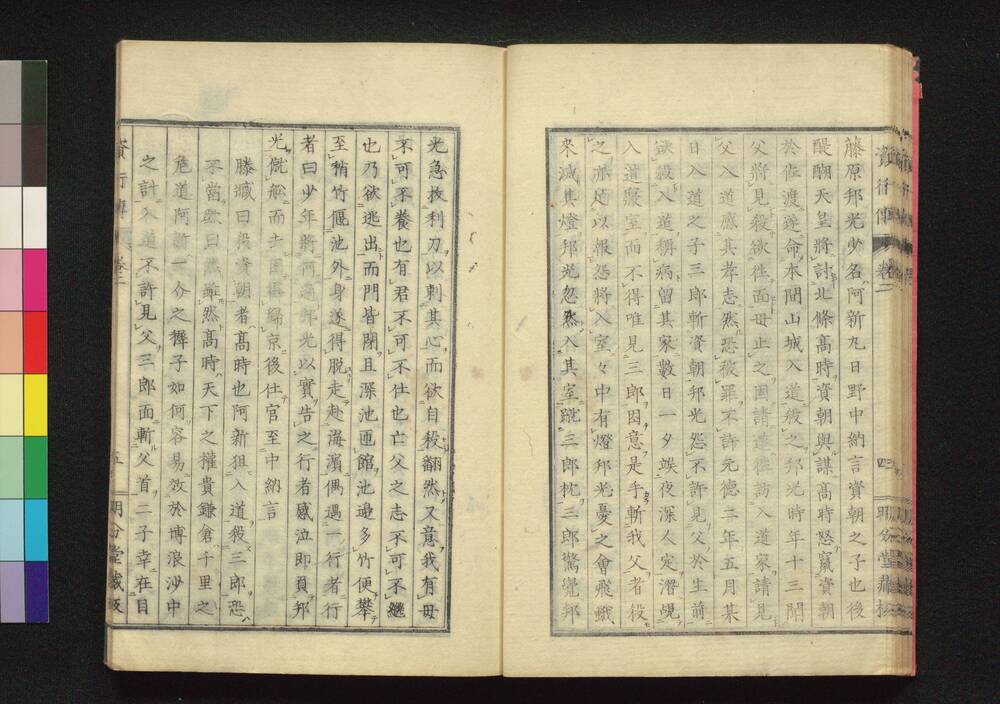 藤原邦光少名阿新九日野中納言資朝之子也後
醍醐天皇將討北條高時資朝與謀高時怒竄資朝
於佐渡遂命本間山城入道殺之邦光時年十三聞
父將見殺欲往面母止之固請遂往訪入道家請見
父入道感其孝志然恐被罪不許元德二年五月某
日入道之子三郎斬資朝邦光怨不許見父於生前
欲殺入道稱病留其家數日一夕竢夜深人定潛覘
入道寢室而不得唯見三郎因意是手斬我父者殺
之亦足以報怨將入室々中有燈邦光憂之會飛蛾
來滅其燈邦光忽然入其室蹴三郎枕三郎驚覺邦
資行傳 卷二 四 明分堂藏板
光急拔利刀以刺其心而欲自殺翻然又意我有母
不可不養也有君不可不仕也亡父之志不可不繼
也乃欲逃出而門皆閉且深池匝館池邊多竹便攀
至稍竹偃池外身遂得脫走赴海濱偶遇一行者行
者曰少年將何適邦光以實告之行者感泣即負邦
光僦舩而去因得歸京後仕官至中納言
滕臧曰殺資朝者高時也阿新狙入道殺三郎恐
不當歟曰然雖然高時天下之權貴鎌倉千里之
危道阿新一介之穉子如何容易效於博浪沙中
之計入道不許見父三郎面斬父首二子幸在目
資行傳 卷二 五 明分堂藏板